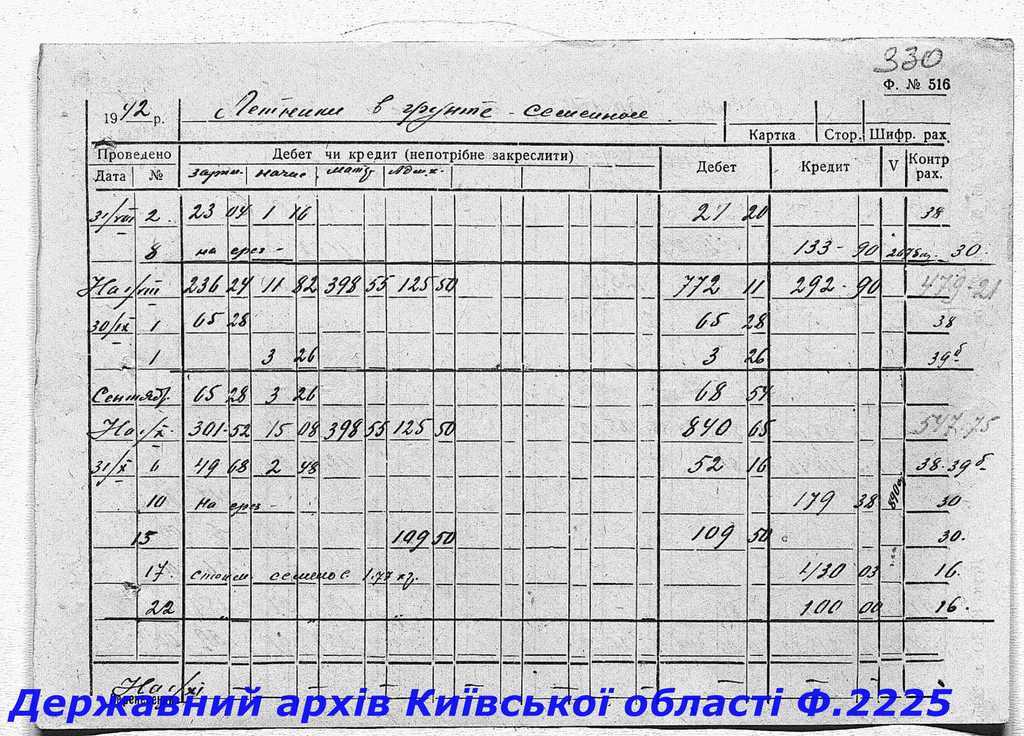 330
Ф. № 516
1942 р. Летники в грунте - семенной
Картка Стор. Шифр. рах.
Проведено Дебет чи кредит (непотрібне закреслити) Дебет Кредит V Контр рах.
Дата № зарпл. начис матер Адм.х.
31/VIII 2. 23 04 1 16 27 20 38
8 на срез - 133-90 30
На 1/VIII 236 24 11 82 398 55 125 50 772 11 292-90 479-21
30/IX 1 65 28 65 28 38
1 3 26 3 26 39б
Сентябр. 65 28 3 26 68 54
На 1/X. 301-52 15 08 398 55 125 50 840 65 547-75
31/X 6 49 68 2 48 52 16 38-39б
10 на срез - 179 38 890 30
15 109 50 109 50 30.
17. стоим семенос 1.77 кг. 430 03 16.
22 " " 100 00 16.
На 1/XI
Державний архів Київської області Ф.2225